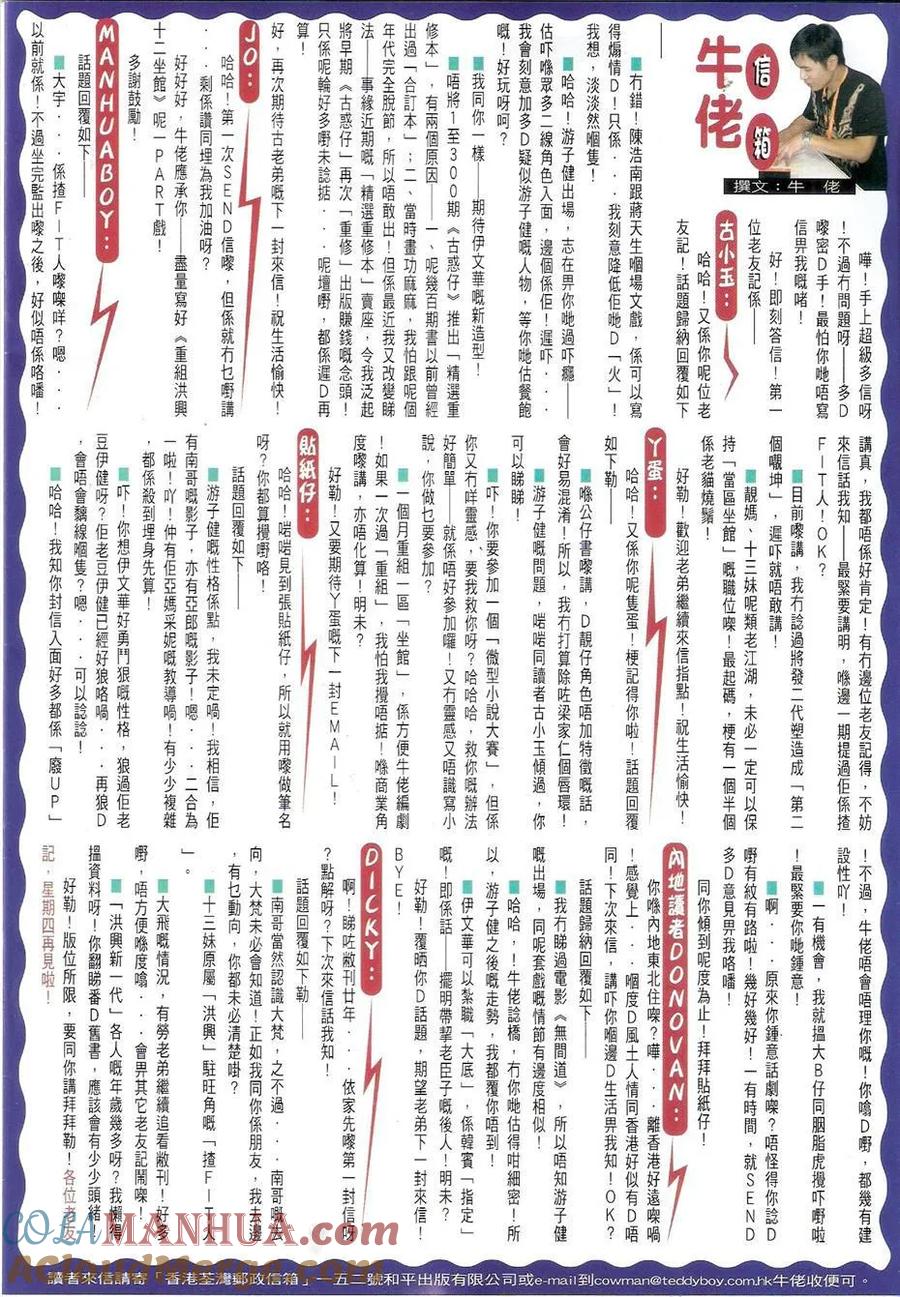 牛佬
信箱
撰文：牛 佬
嘩！手上超級多信呀
！不過冇問題呀——多D
嚟密D手！最怕你哋唔寫
信畀我嘅啫！
好！即刻答信！第一
位老友記係——
古小玉：
哈哈！又係你呢位老
友記！話題歸納回覆如下
——
冇錯！陳浩南跟蔣天生嗰場文戲，係可以寫
得煽情D！只係．．．我刻意降低佢哋D「火」！
我想，淡淡然嗰隻！
哈哈！游子健出場，志在畀你哋過吓癮——
估吓喺眾多二線角色入面，邊個係佢！遲吓．．．
我會刻意加多D疑似游子健嘅人物，等你哋估餐飽
嘅！好玩呀呵？
我同你一樣——期待伊文華嘅新造型！
唔將1至300期《古惑仔》推出「精選重
修本」，有兩個原因——一、呢幾百期書以前曾經
出過「合訂本」；二、當時畫功麻麻，我怕跟呢個
年代完全脫節，所以唔敢出！但係最近我又改變睇
法——事緣近期嘅「精選重修本」賣座，令我泛起
將早期《古惑仔」再次「重修」出版賺錢嘅念頭！
只係呢輪好多嘢未諗掂．．呢壇嘢，都係遲D再
算！
好，再次期待古老弟嘅下一封來信！祝生活愉快！
JO：
哈哈！第一次SEND信嚟，但係就冇乜嘢講
．．．剩係讚同埋為我加油呀？
好好好，牛佬應承你——盡量寫好《重組洪興
十二坐館》呢一PART戲！
多謝鼓勵！
MANHUABOY：
話題回覆如下——
大宇．．．係揸FIT人嚟㗎咩？嗯．．．
以前就係！不過坐完監出嚟之後，好似唔係咯噃！
講真，我都唔係好肯定！有冇邊位老友記得，不妨
來信話我知——最緊要講明，喺邊一期提過佢係揸
FIT人！OK？
目前嚟講，我冇諗過將發二代塑造成「第二
個嚫坤」，遲吓就唔敢講！
靚媽、十三妹呢類老江湖，未必一定可以保
持「當區坐館」嘅職位㗎！最起碼，梗有一個半個
係老貓燒鬚！
好勒！歡迎老弟繼續來信指點！祝生活愉快！
丫蛋：
哈哈！又係你呢隻蛋！梗記得你啦！話題回覆
如下勒——
喺公仔書嚟講，D靚仔角色唔加特徵嘅話，
會好易混淆！所以，我冇打算除咗梁家仁個唇環！
游子健嘅問題，啱啱同讀者古小玉傾過，你
可以睇睇！
吓！你要參加一個「微型小說大賽」，但係
你又冇咩靈感，要我救你呀！哈哈哈，救你嘅辦法
好簡單——就係唔好參加囉！又冇靈感又唔識寫小
說，你做乜要參加？
一個月重組一區「坐館」，係方便牛佬編劇
！如果一次過「重組」，我怕我攪唔掂！喺商業角
度嚟講，亦唔化算！明未？
好勒！又要期待丫蛋嘅下一封EMAIL！
貼紙仔：
哈哈！啱啱見到張貼紙仔，所以就用嚟做筆名
呀？你都算攪嘢咯！
話題回覆如下——
游子健嘅性格係點，我未定喎！我相信，佢
有南哥嘅影子，亦有亞郎嘅影子！嗯．．．二合為
一啦！吖！仲有佢亞媽采妮嘅教導喎！有少少複雜
，都係殺到埋身先算！
吓！你想伊文華好勇鬥狠嘅性格，狼過佢老
豆伊健呀？佢老豆伊健已經好狼咯喎．．．再狼D
，會唔會黐線嗰隻？嗯．．．可以諗諗！
哈哈！我知你封信入面好多都係「廢UP」
！不過，牛佬唔會唔理你嘅！你噏D嘢，都幾有建
設性吖！
一有機會，我就搵大B仔同胭脂虎攪吓嘢啦
！最緊要你哋鍾意！
啊．．．原來你鍾意話劇㗎？唔怪得你諗D
嘢有紋有路啦！幾好幾好！一有時間，就SEND
多D意見畀我咯噃！
同你傾到呢度為止！拜拜貼紙仔！
內地讀者DONOVAN：
你喺內地東北住㗎？嘩．．．離香港好遠㗎喎
！感覺上．．．嗰度D風土人情同香港好似有D唔
同！下次來信，講吓你嗰邊D生活畀我知！OK？
話題歸納回覆如下——
我冇睇過電影《無間道》，所以唔知游子健
嘅出場，同呢套戲嘅情節有邊度相似！
哈哈，！牛佬諗橋，冇你哋估得咁細密！所
以，游子健之後嘅走勢，我都覆你唔到！
伊文華可以紮職「大底」，係韓賓「指定」
嘅！即係話——擺明帶挈老臣子嘅後人！明未？
好勒！覆晒你D話題，期望老弟下一封來信！
BYE！
DICKY：
啊！睇咗敝刊廿年．．．依家先嚟第一封信呀
？點解呀？下次來信話我知！
話題回覆如下勒——
南哥當然認識大梵，之不過．．．南哥嘅去
向，大梵未必會知道！正如我同你係朋友，我去邊
，有乜動向，你都未必清楚啩？
十三妹原屬「洪興」駐旺角嘅「揸FIT人
」。
大飛嘅情況，有勞老弟繼續追看敝刊！好多
嘢，唔方便喺度噏．．．會畀其它老友記鬧㗎！
「洪興新一代」各人嘅年歲幾多呀？我懶得
搵資料呀！你翻睇番D舊書，應該會有少少頭緒！
好勒！版位所限，要同你講拜拜勒！各位老友
記，星期四再見啦！
COLAMANHUA.COM
AcloudMerge.com
讀者來信請寄「香港荃灣郵政信箱」一五二號和平出版有限公司或e-mail到cowman@teddyboy.com.hk牛佬收便可。